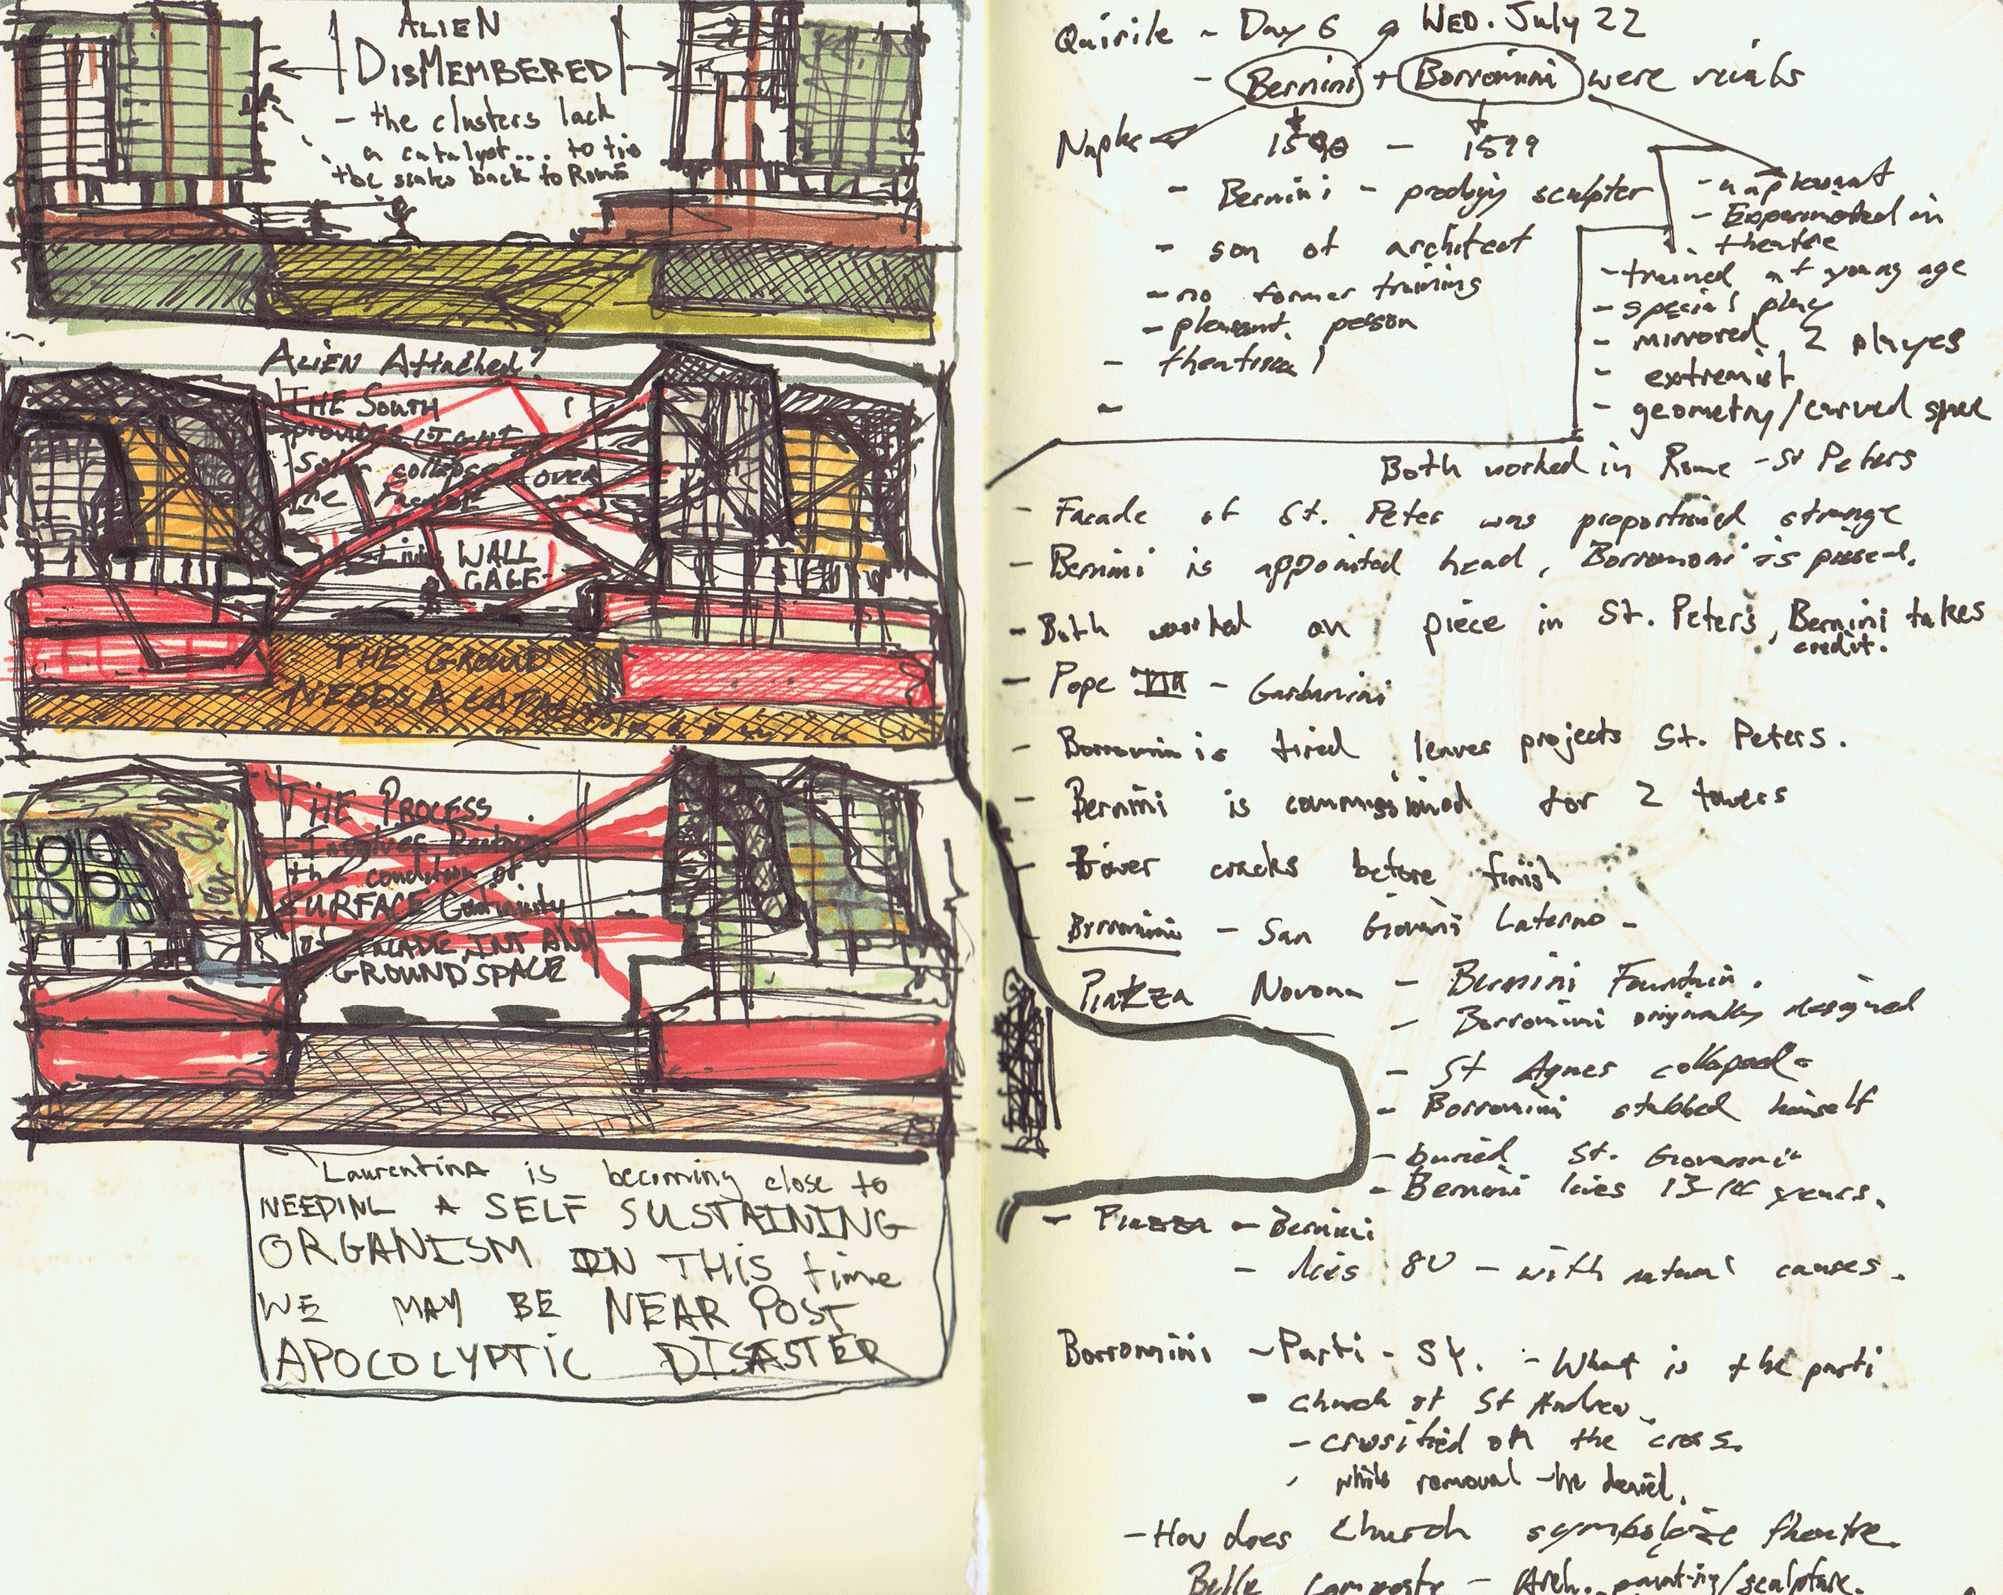 ALIEN
DISMEMBERED
- the clusters lack
a catalyst... to tie
the scales back to Roma
ALIEN Attached?
THE SOUTH
- provides LIGHT
- Solar collapse over
the facade
Living WALL
CAGE -
THE GROUND
NEEDS A
THE PROCESS
Involves
the condition of
SURFACE Continuity
FACADE, INT AND
GROUND SPACE
Laurentina is becoming close to
NEEDING A SELF SUSTAINING
ORGANISM IN THIS time
WE MAY BE NEAR POST
APOCOLYPTIC DISASTER
Quirile ~ Day 6 @ WED. July 22
- Bernini + Borromini were rivals
Naples 1598 - 1599
- Bernini - prodigy sculpter
- son of architect
- no former training
- pleasant person
- theatrical
-
- Experimented in
theatre
- trained at young age
- special play
- mirrored 2 playes
- extremist
- geometry/curved space
Both worked in Rome - St Peters
- Facade of St. Peter was proportioned strange
- Bernini is appointed head, Borromoni is pissed.
- Both worked on piece in St. Peters, Bernini takes
credit.
- Pope VIII -
- Borromini is tired leaves projects St. Peters.
- Bernini is commissioned for 2 towers
- Tower cracks before finish
- Borromini - San Giovani Laterno -
Piazza Novona - Bernini Fountain.
- Borromini originally designed
- St Agnes collapsed -
- Borromini stabbed himself
- buried St. Giovanni -
- Bernini lives 13 14 years.
- Piazza - Bernini
- dies 80 - with natural causes.
Borromini - Parti - S4. - What is the parti
- church of St Andrew.
- crusified on the cross.
- while removal - he denied.
- How does church symbolize theatre.
Belle Composto - Arch. painting/sculpture.